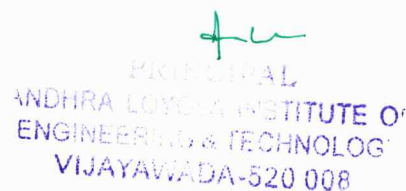 PRINCIPAL
ANDHRA LOYOLA INSTITUTE O
ENGINEERING & TECHNOLOG
VIJAYAWADA-520 008